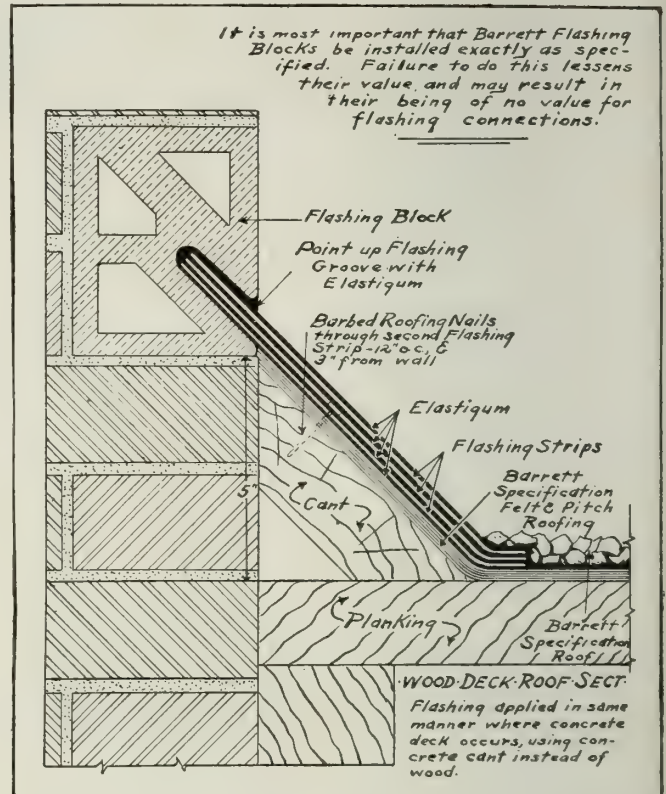 It is most important that Barrett Flashing
Blocks be installed exactly as spec-
ified. Failure to do this lessens
their value, and may result in
their being of no value for
flashing connections.
Flashing Block
Point up Flashing
Groove with
Elastigum
Barbed Roofing Nails
through second Flashing
Strip-12" o.c., &
3" from wall
Elastigum
Flashing Strips
Barrett
Specification
Felt & Pitch
Roofing
5"
Cant
Planking
Barrett
Specification
Roof
·WOOD·DECK·ROOF·SECT·
Flashing applied in same
manner where concrete
deck occurs, using con-
crete cant instead of
wood.